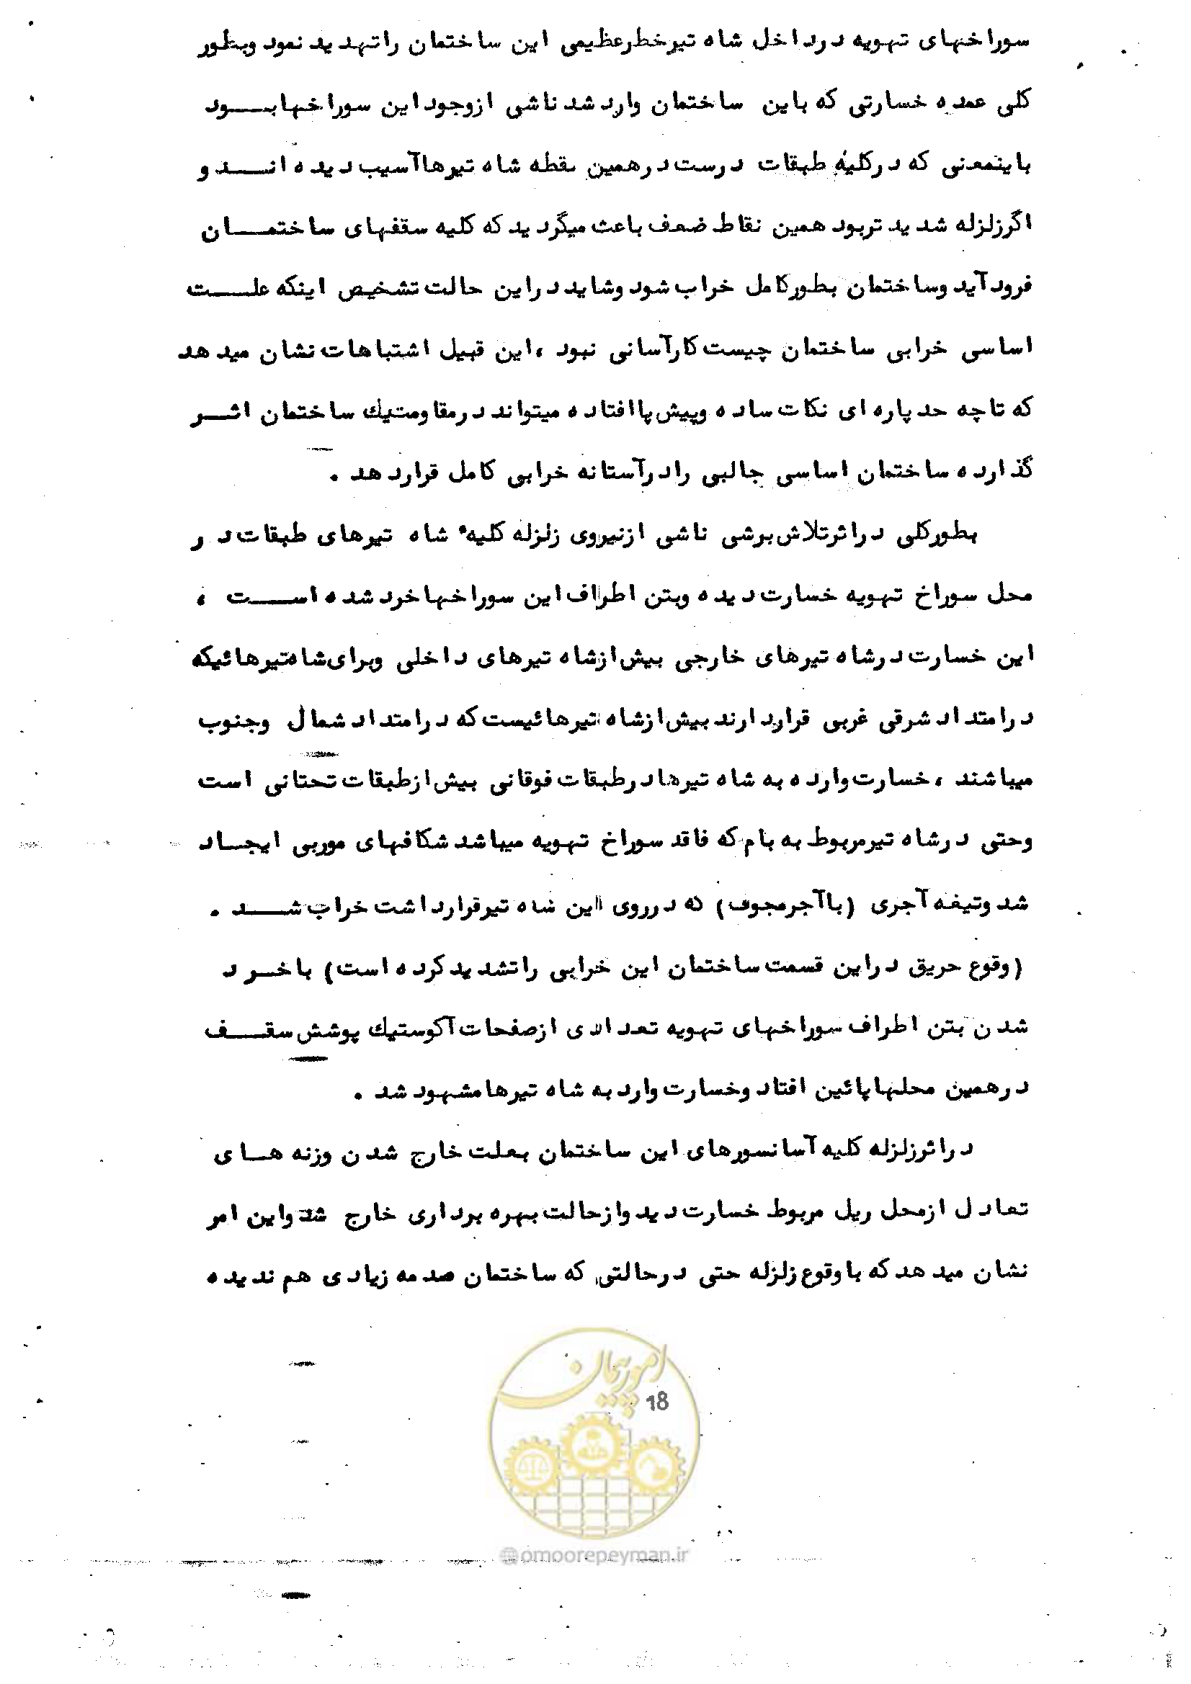 سوراخهای تهویه درداخل شاه تیرخطرعظیمی این ساختمان راتهدید نمود وبطور
کلی عمده خسارتی که باین ساختمان وارد شد ناشی ازوجود این سوراخها بـــود
باینمعنی که درکلیه طبقات درست درهمین نقطه شاه تیرهاآسیب دیده انـــد و
اگرزلزله شدید تربود همین نقاط ضعف باعث میگردید که کلیه سقفهای ساختمـــان
فرودآید وساختمان بطورکامل خراب شود وشاید دراین حالت تشخیص اینکه علـــت
اساسی خرابی ساختمان چیست کارآسانی نبود ،این قبیل اشتباهات نشان میدهد
که تاچه حد پاره ای نکات ساده وپیش پاافتاده میتواند درمقاومت یك ساختمان اثـــر
گذارده ساختمان اساسی جالبی رادرآستانه خرابی کامل قرار دهد .
بطورکلی دراثرتلاش برشی ناشی ازنیروی زلزله کلیهٔ شاه تیرهای طبقات در
محل سوراخ تهویه خسارت دیده وبتن اطراف این سوراخهاخرد شده اســـت ،
این خسارت درشاه تیرهای خارجی بیش ازشاه تیرهای داخلی وبرای شاه‌تیرهائیکه
درامتداد شرقی غربی قراردارند بیش ازشاه تیرهائیست که درامتداد شمال وجنوب
میباشند ، خسارت وارده به شاه تیرها درطبقات فوقانی بیش ازطبقات تحتانی است
وحتی درشاه تیرمربوط به بام که فاقد سوراخ تهویه میباشد شکافهای موربی ایجـاد
شد وتیغه آجری (باآجرمجوف) که درروی این شاه تیرقرارداشت خراب شـــد .
(وقوع حریق دراین قسمت ساختمان این خرابی راتشدید کرده است) باخـــرد
شدن بتن اطراف سوراخهای تهویه تعدادی ازصفحات آکوستیك پوشش سقـــف
درهمین محلهاپائین افتاد وخسارت وارد به شاه تیرهامشهود شد .
دراثرزلزله کلیه آسانسورهای این ساختمان بعلت خارج شدن وزنه هـای
تعادل ازمحل ریل مربوط خسارت دید وازحالت بهره برداری خارج شد واین امر
نشان میدهد که باوقوع زلزله حتی درحالتی که ساختمان صدمه زیادی هم ندیده
امور پیمان
18
@omoorepeyman.ir